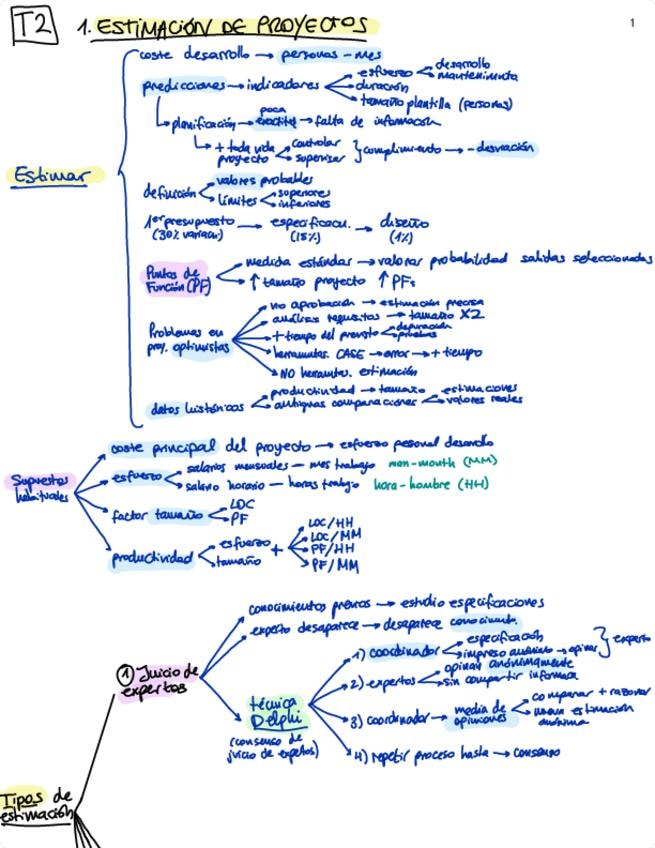 T2 1. ESTIMACIÓN DE PROYECTOS
1
Estimar
coste desarrollo → personas - mes
predicciones → indicadores
esfuerzo
desarrollo
mantenimiento
duración
tamaño plantilla (personas)
planificación → poca exactitud → falta de información
+ toda vida proyecto
controlar
supervisar
} cumplimiento → - desviación
definición
valores probables
límites
superiores
inferiores
1er presupuesto → especificaci. → diseño
(30% variaci.) (15%) (4%)
Puntos de Función (PF)
medida estándar → valorar probabilidad salidas seleccionadas
↑ tamaño proyecto ↑ PFs
Problemas en proy. optimistas
no aprobación → estimación precisa
análisis requisitos → tamaño X2
+ tiempo del previsto
depuración
pruebas
herramientas. CASE → error → + tiempo
NO herramta. estimación
datos históricos
productividad → tamaño
antiguas comparaciones
estimaciones
valores reales
Supuestos habituales
coste principal del proyecto → esfuerzo personal desarrollo
esfuerzo
salarios mensuales — mes trabajo man-mouth (MM)
salario horario — horas trabajo hora-hombre (HH)
factor tamaño
LDC
PF
productividad
esfuerzo
tamaño
+
LDC/HH
LDC/MM
PF/HH
PF/MM
Tipos de estimación
① Juicio de expertos
conocimientos previos → estudio especificaciones
experto desaparece → desaparece conocimiento
técnica Delphi
(consenso de juicio de expertos)
1) coordinador
especificación
impreso anónimo → opinar
} experto
2) expertos
opinar anónimamente
sin compartir informac
3) coordinador → media de opiniones
comparar + razonar
nueva estimación anónima
4) repetir proceso hasta → consenso